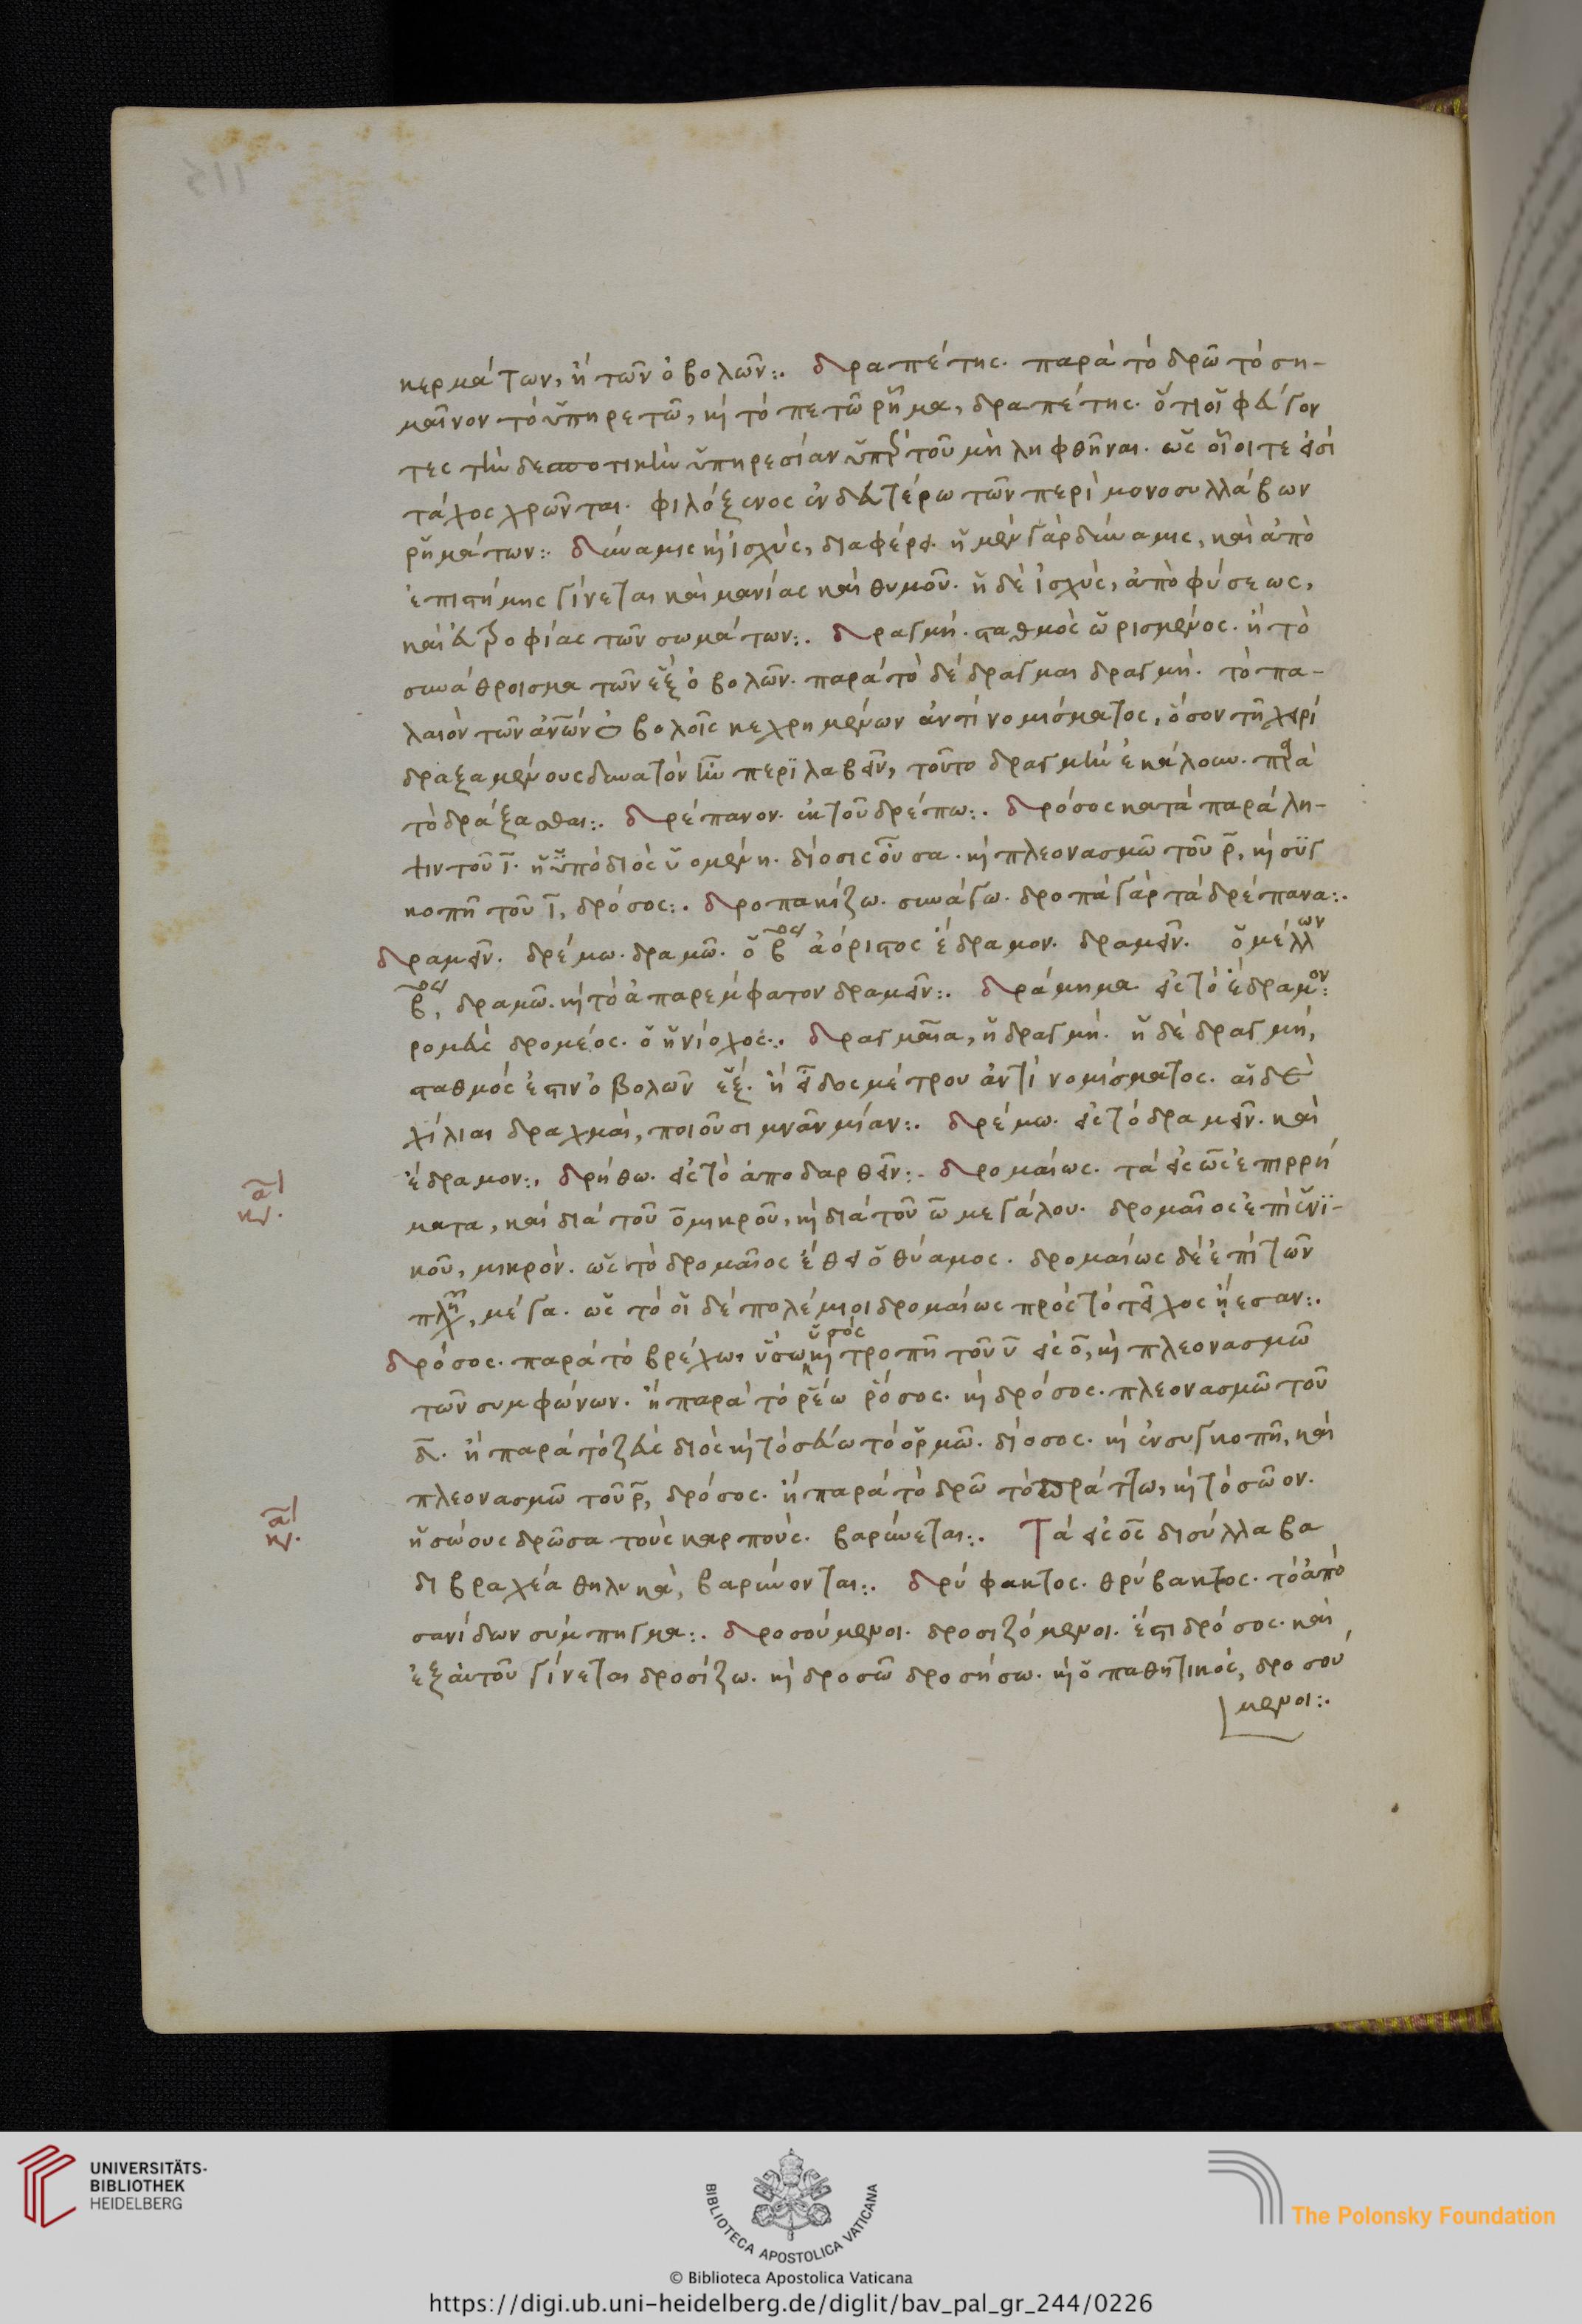 115
κερμάτων, ἢ τῶν ὀβολῶν:. δραπέτης. παρὰ τὸ δρῶ τὸ ση-
μαῖνον τὸ ὑπηρετῶ, κ̀ τὸ πετῶ ῥῆμα, δραπέτης. ὅτι οἱ φεύγον
τες τὴν δεσποτικὴν ὑπηρεσίαν ὑπὲρ τοῦ μὴ ληφθῆναι. ὡς οἷοί τε εἰσὶ
τάχος χρῶνται. φιλόξενος ἐν δευτέρω τῶν περὶ μονοσυλλάβων
ῥημάτων:. δύναμις κ̀ ἰσχύς, διαφέρει. ἡ μὲν γὰρ δύναμις, καὶ ἀπὸ
ἐπιστήμης γίνεται καὶ μανίας καὶ θυμοῦ. ἡ δὲ ἰσχύς, ἀπὸ φύσεως,
καὶ εὐτροφίας τῶν σωμάτων:. δραγμή. σταθμὸς ὡρισμένος. ἢ τὸ
συνάθροισμα τῶν ἓξ ὀβολῶν. παρὰ τὸ δέδραγμαι δραγμή. τὸ πα-
λαιὸν τῶν ἀνῶν ὀβολοῖς κεχρημένων ἀντὶ νομίσματος, ὅσον τῆ χειρὶ
δραξαμένους δυνατὸν ἦν περιλαβεῖν, τοῦτο δραγμὴν ἐκάλουν. παρὰ
τὸ δράξασθαι:. δρέπανον. ἐκ τοῦ δρέπω:. δρόσος κατὰ παράλη-
ψιν τοῦ ι. ἡ ὑπὸ διὸς ὑομένη. δίοσις οὖσα. κ̀ πλεονασμῶ τοῦ ρ, κ̀ συγ
κοπῆ τοῦ ι, δρόσος:. δροπακίζω. συνάγω. δροπὰ γὰρ τὰ δρέπανα:.
δραμεῖν. δρέμω. δραμῶ. ὁ βος ἀόριστος ἔδραμον. δραμεῖν. ὁ μέλλων
βος, δραμῶ. κ̀ τὸ ἀπαρέμφατον δραμεῖν:. δράμημα εἰς τὸ ἔδραμον:
ρομεὺς δρομέος. ὁ ἡνίοχος:. δραγμαία, ἡ δραγμή. ἡ δὲ δραγμή,
σταθμός ἐστιν ὀβολῶν ἕξ. ἢ εἶδος μέτρου ἀντὶ νομίσματος. αἱ δὲ
χίλιαι δραχμαὶ, ποιοῦσι μνᾶν μίαν:. δρέμω. εἰς τὸ δραμεῖν. καὶ
ἔδραμον:, δρήθω. εἰς τὸ ἀποδαρθεῖν:. δρομαίως. τὰ εἰς ως ἐπιρρή
ματα, καὶ διὰ τοῦ ο μικροῦ, κ̀ διὰ τοῦ ω μεγάλου. δρομαῖος ἐπὶ ἑνϊ-
κοῦ, μικρόν. ὡς τὸ δρομαῖος ἔθει ὁ θύαμος. δρομαίως δὲ ἐπὶ τῶν
πλη, μέγα. ὡς τὸ οἱ δὲ πολέμιοι δρομαίως πρὸς τὸ τεῖχος ᾔεσαν:.
δρόσος. παρὰ τὸ βρέχω, ὕσω ὑσὸς κ̀ τροπῆ τοῦ υ εἰς ο, κ̀ πλεονασμῶ
τῶν συμφώνων. ἢ παρὰ τὸ ῥέω ῥόσος. κ̀ δρόσος. πλεονασμῶ τοῦ
δ. ἢ παρὰ τὸ ζεὺς διὸς κ̀ τὸ σεύω τὸ ὁρμῶ. δίοσος. κ̀ ἐν συγκοπῆ, καὶ
πλεονασμῶ τοῦ ρ, δρόσος. ἢ παρὰ τὸ δρῶ τὸ πράττω, κ̀ τὸ σῶον.
ἡ σώους δρῶσα τοὺς καρπούς. βαρύνεται:. Τὰ εἰς ος δισύλλαβα
διβραχέα θηλυκὰ, βαρύνονται:. δρύφακτος. θρύβακτος. τὸ ἀπὸ
σανίδων σύμπηγμα:. δροσούμενοι. δροσιζόμενοι. ἔστι δρόσος. καὶ
ἐξ αὐτοῦ γίνεται δροσίζω. κ̀ δροσῶ δροσήσω. κ̀ ὁ παθητικός, δροσού
μενοι:.
UNIVERSITÄTS-
BIBLIOTHEK
HEIDELBERG
BIBLIOTECA APOSTOLICA VATICANA
The Polonsky Foundation
© Biblioteca Apostolica Vaticana
https://digi.ub.uni-heidelberg.de/diglit/bav_pal_gr_244/0226